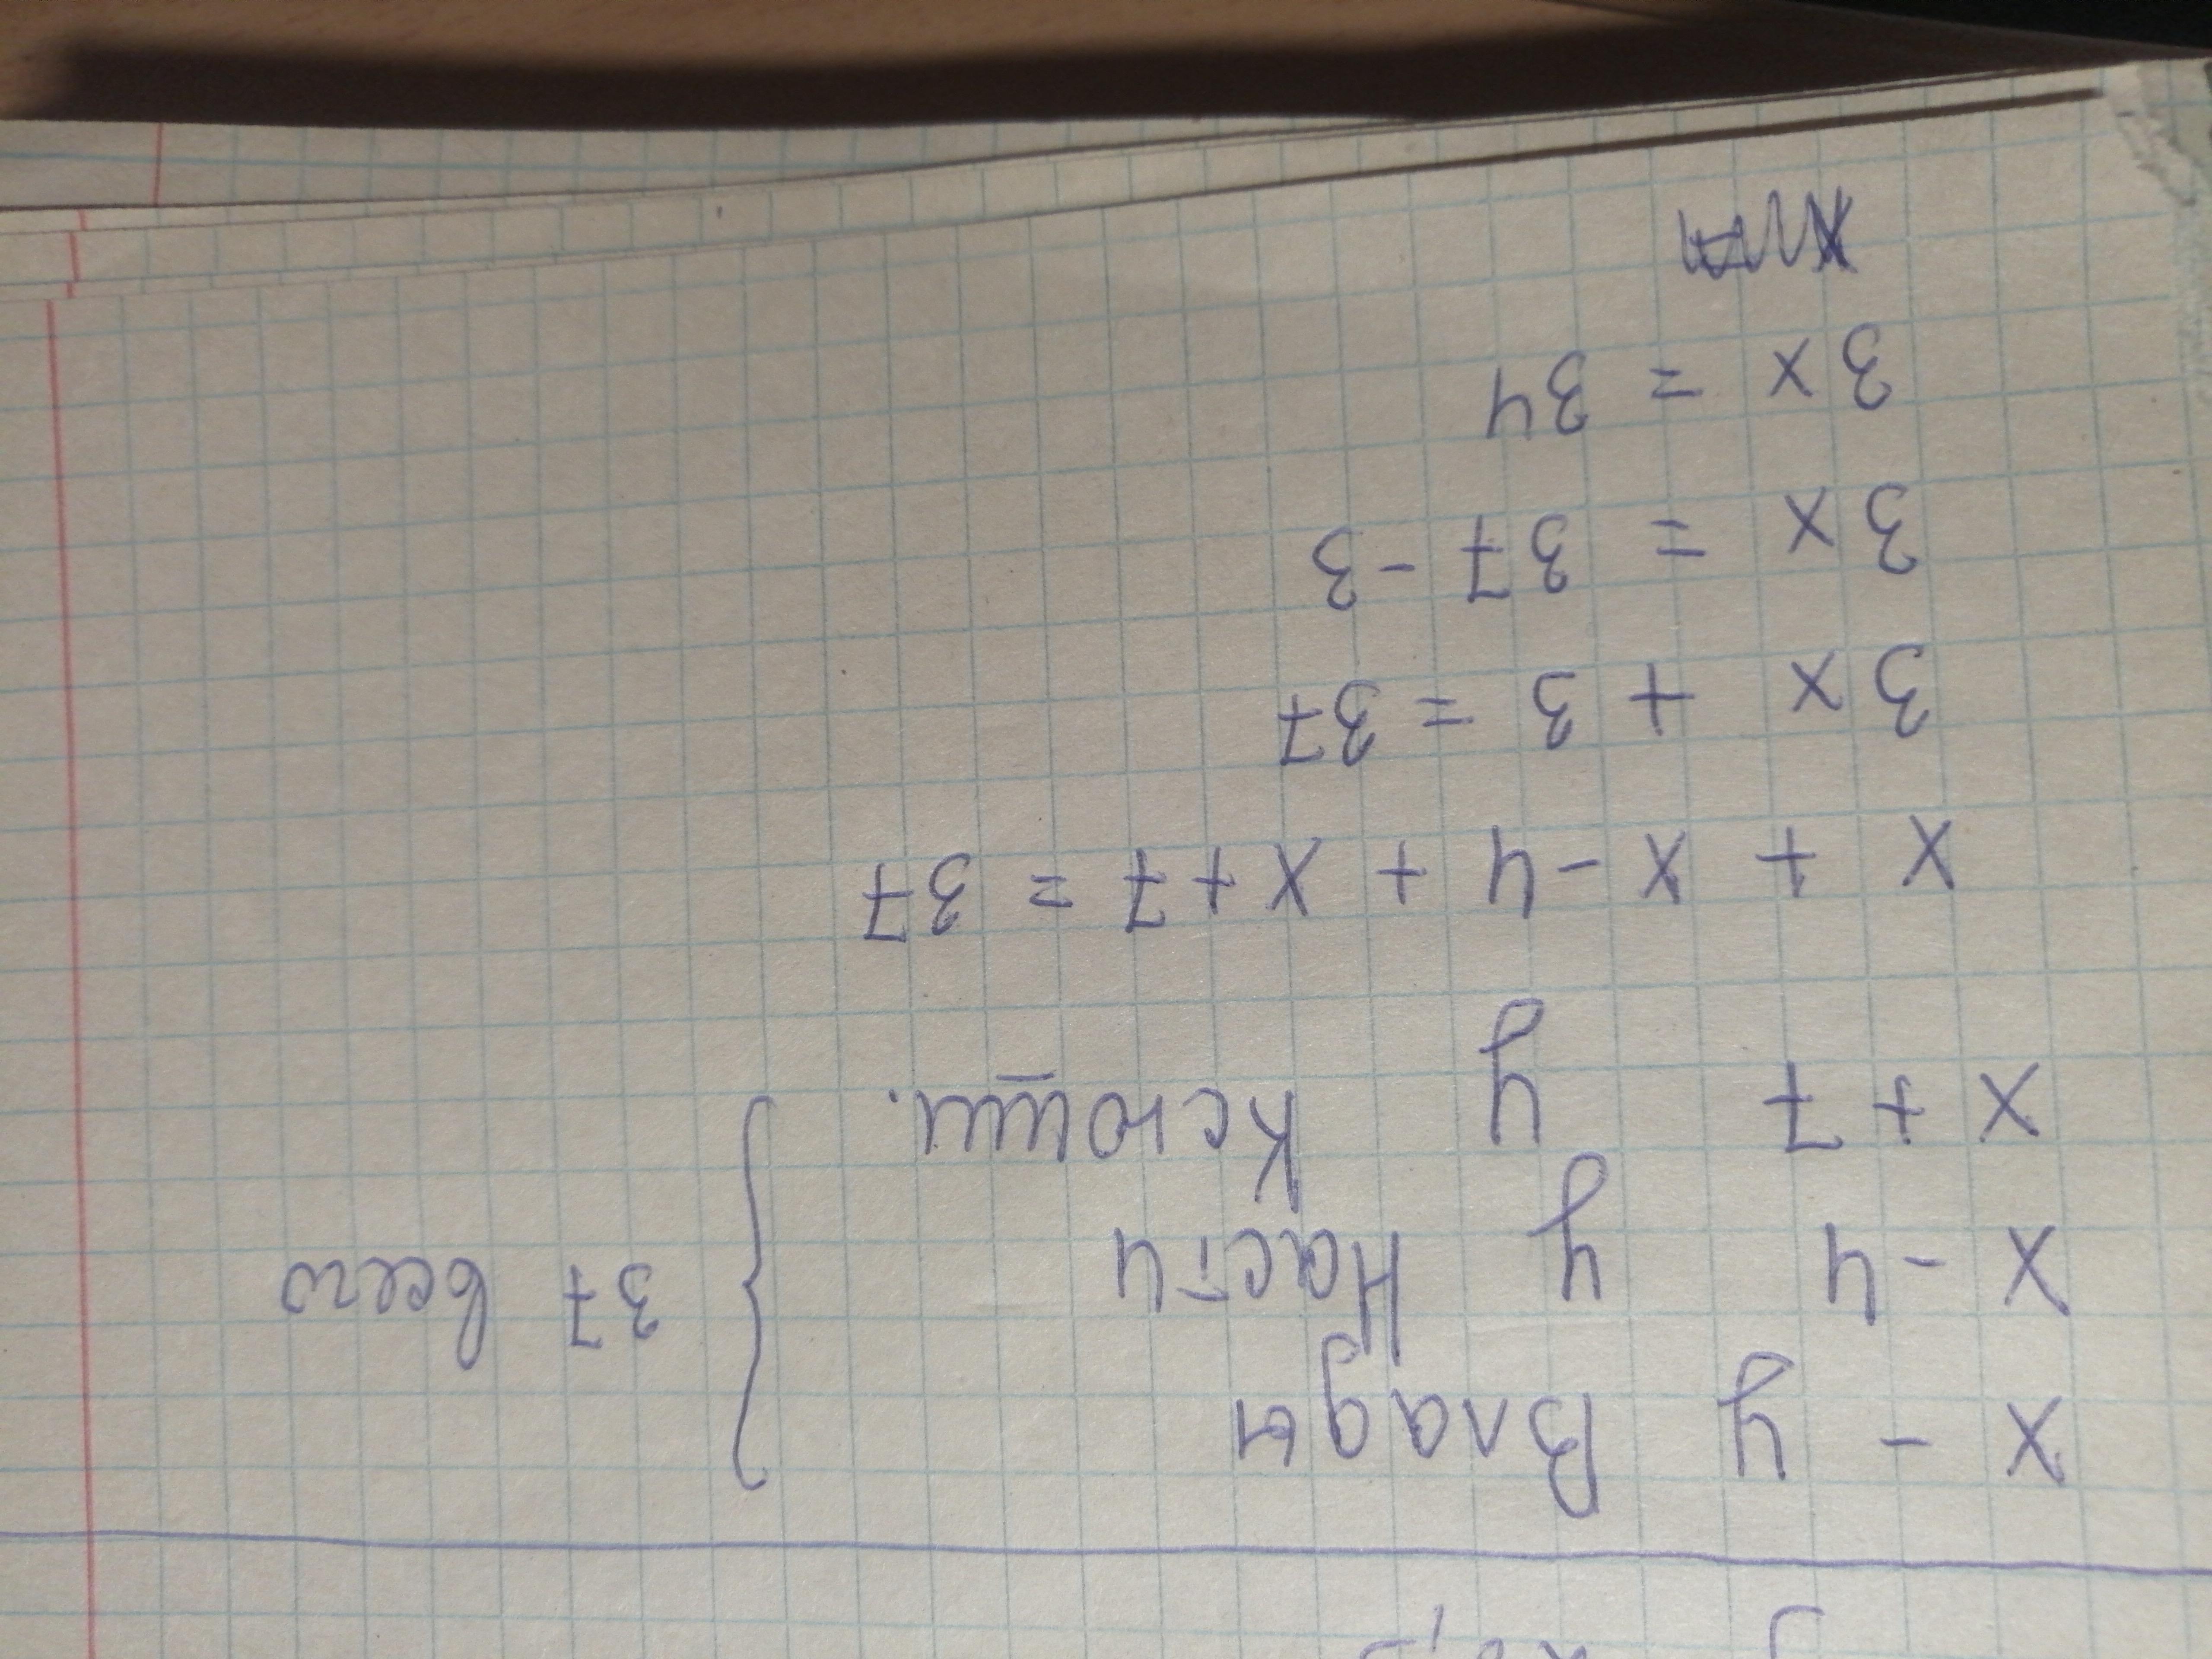 x - у Влады
x - 4 у Насти
37 всего
x + 7 у Ксюши.
x + x - 4 + x + 7 = 37
3x + 3 = 37
3x = 37 - 3
3x = 34